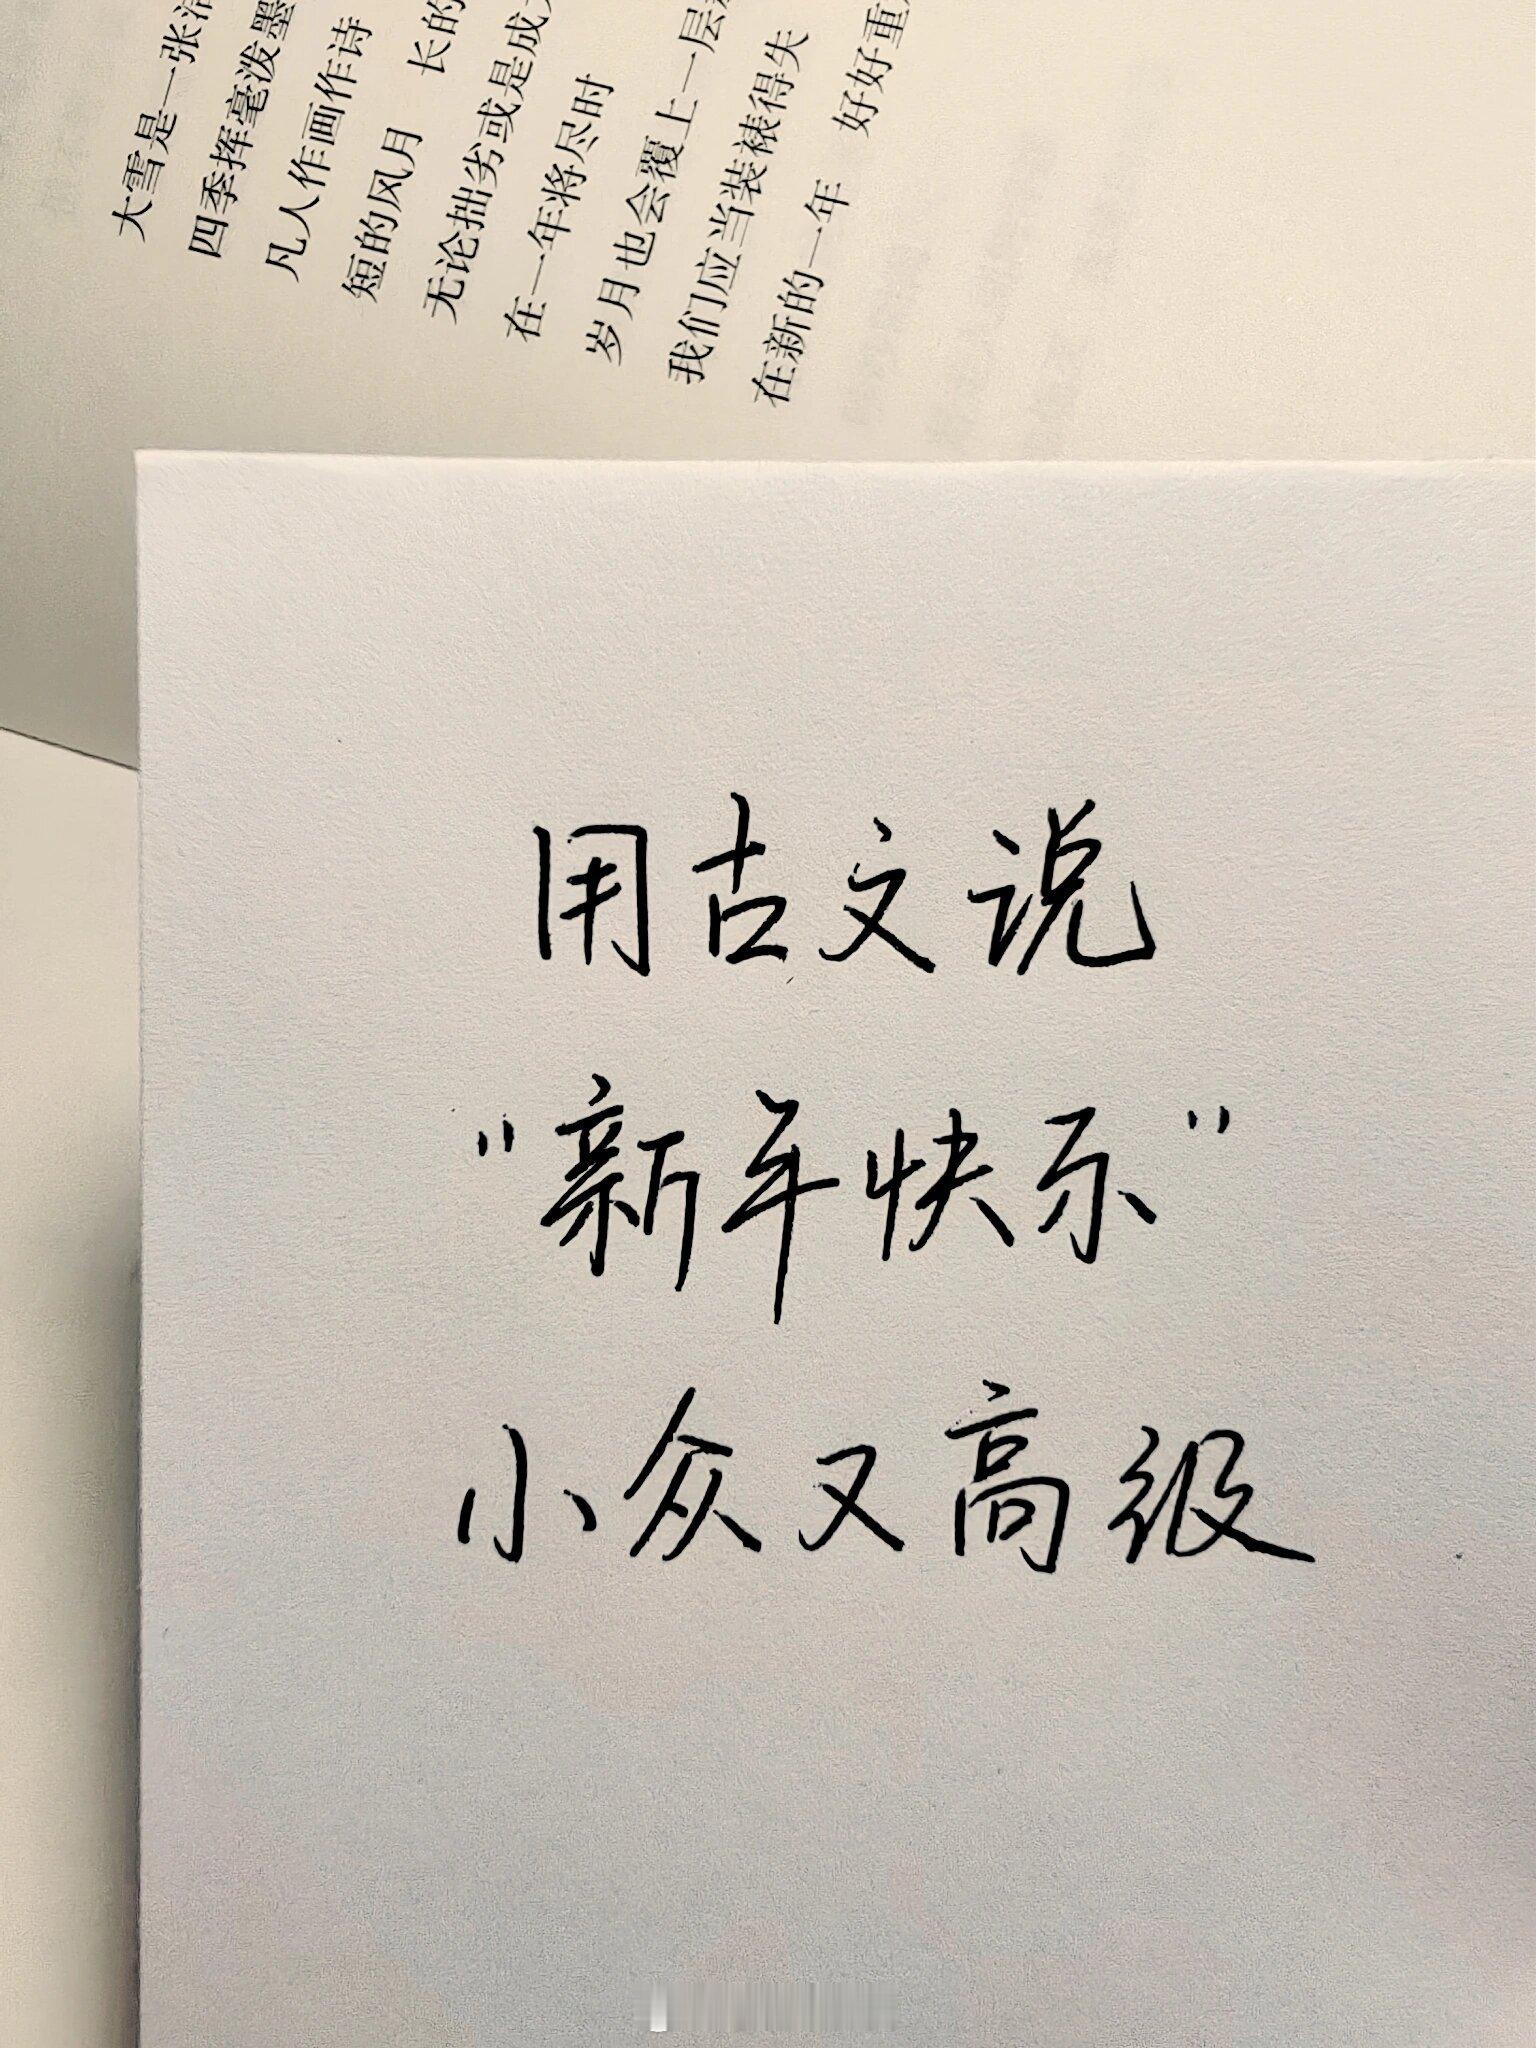 大雪是一张洁
四季挥毫泼墨
凡人作画作诗
短的风月 长的
无论拙劣或是成
在一年将尽时
岁月也会覆上一层
我们应当装裱得失
在新的一年 好好重
用古文说
“新年快乐”
小众又高级